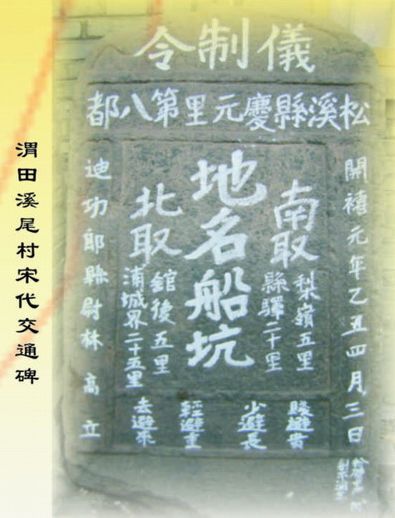 儀制令
松溪縣慶元里第八都
開禧元年乙丑四月三日
南取
梨嶺五里
縣驛二十里
地名船坑
北取
館後五里
浦城界二十五里
賤避貴
少避長
輕避重
去避來
迪功郎縣尉林高立
渭田溪尾村宋代交通碑